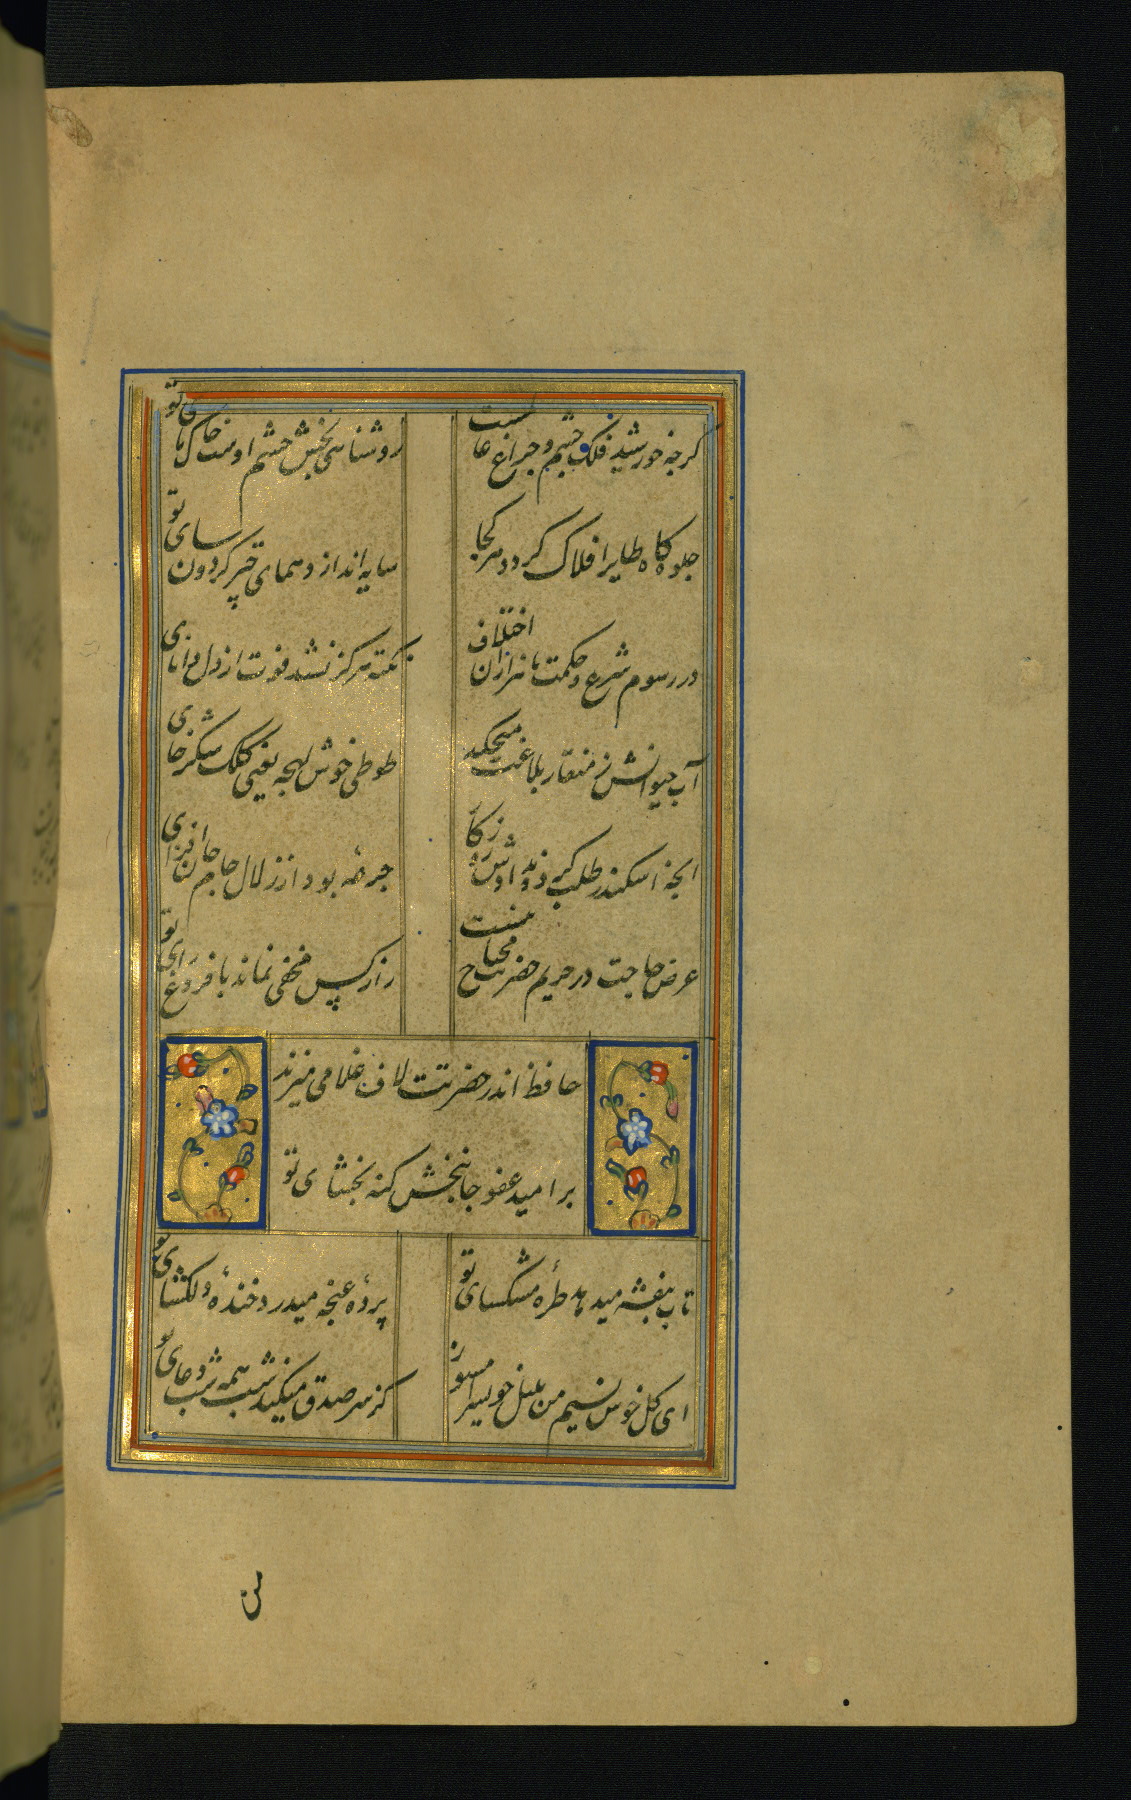 گرچه خورشید فلک چشم و چراغ عالمست
روشنائی بخش چشم اوست خاک پای تو
جلوه گاه طایر افلاک گردد هر کجا
سایه اندازد همای چتر گردون سای تو
در رسوم شرع و حکمت با هزاران اختلاف
نکته هرگز نشد فوت از دل دانای
آب حیوانش ز منقار بلاغت میچکد
طوطی خوش لهجه یعنی کلک شکرخای
انچه اسکندر طلب کرد و ندادش روزگار
جرعه بود از زلال جام جان افزای
عرض حاجت در حریم حضرتت محتاج نیست
راز کس مخفی نماند با فروغ رای تو
حافظ اندر حضرتت لاف غلامی میزند
بر امید عفو جانبخش گنه بخشای تو
تاب بنفشه میدهد طره مشکسای تو
پرده غنچه میدرد خنده دلگشای تو
ای گل خوش نسیم من بلبل خویش را مسوز
کز سر صدق میکند شب همه شب دعای تو